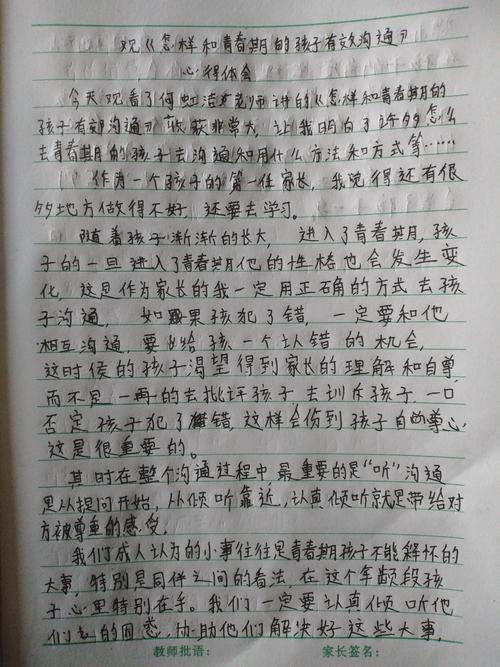 观《怎样和青春期的孩子有效沟通》
心得体会
今天观看了何虹洁老师讲的《怎样和青春期的
孩子有效沟通》收获非常大，让我明白了许多怎么
去青春期的孩子去沟通和用什么方法和方式等……
作为一个孩子的第一任家长，我觉得还有很
多地方做得不好，还要去学习。
随着孩子渐渐的长大，进入了青春期，孩
子的一旦进入了青春期他的性格也会发生变
化，这是作为家长的我一定用正确的方式去孩
子沟通，如果孩犯了错，一定要和他
相互沟通，要给孩一个认错的机会，
这时侯的孩子渴望得到家长的理解和自尊
而不是一再的去批评孩子去训斥孩子一口
否定孩子犯了错这样会伤到孩子自尊心
这是很重要的。
其时在整个沟通过程中最重要的是“听”沟通
是从提问开始，从倾听靠近，认真倾听就是带给对
方被尊重的感受，
我们成人认为的小事往往是青春期孩子不能解怀的
大事，特别是同伴之间的看法，在这个年龄段孩
子心里特别在乎。我们一定要认真倾听他
们的困惑，协助他们解决好这些大事，
教师批语： 家长签名：